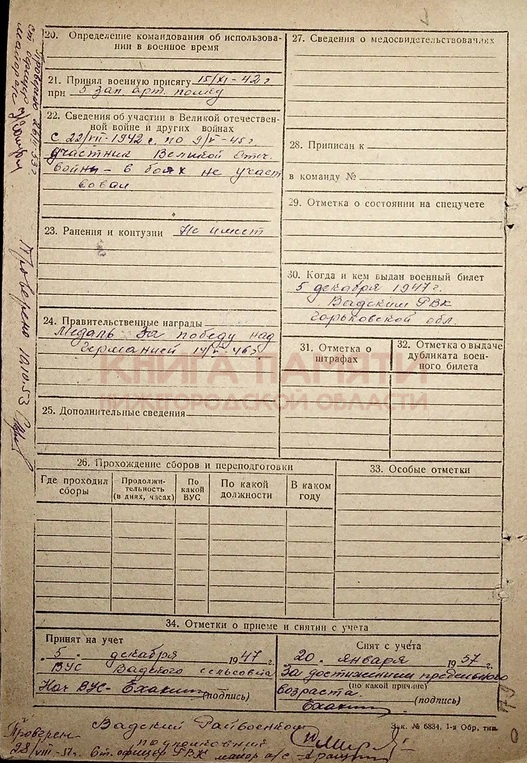 20. Определение командования об использова-
нии в военное время
21. Принял военную присягу 15/XI-42 г
при 5 зап арт. полку
22. Сведения об участии в Великой отечествен-
ной войне и других войнах
с 22/VII-1942 г. по 9/V-45 г.
участник Великой Отеч.
войны - в боях не участ
вовал
23. Ранения и контузии Не имеет
24. Правительственные награды
Медаль За победу над
Германией
25. Дополнительные сведения
26. Прохождение сборов и переподготовки
Где проходил
сборы
Продолжи-
тельность
(в днях, часах)
По
какой
ВУС
По какой
должности
В каком
году
27. Сведения о медосвидетельствованиях
28. Приписан к
в команду №
29. Отметка о состоянии на спецучете
30. Когда и кем выдан военный билет
5 декабря 1947 г.
Вадским РВК
Горьковской обл.
31. Отметка о
штрафах
32. Отметка о выдаче
дубликата воен-
ного билета
33. Особые отметки
КНИГА ПАМЯТИ
НИЖЕГОРОДСКОЙ ОБЛАСТИ
34. Отметки о приеме и снятии с учета
Принят на учет
5. декабря 1947 г.
ВУС Вадского сельсовета
Нач ВУС-
(подпись)
Снят с учета
20. января 1957 г.
За достижением предельного
(по какой причине)
возраста.
(подпись)
Вадский Райвоенком
подполковник
Зак. № 6834, 1-я Обр. тип.
Проверен
28/VIII-51. Ст. офицер РВК майор а/с
Проверено